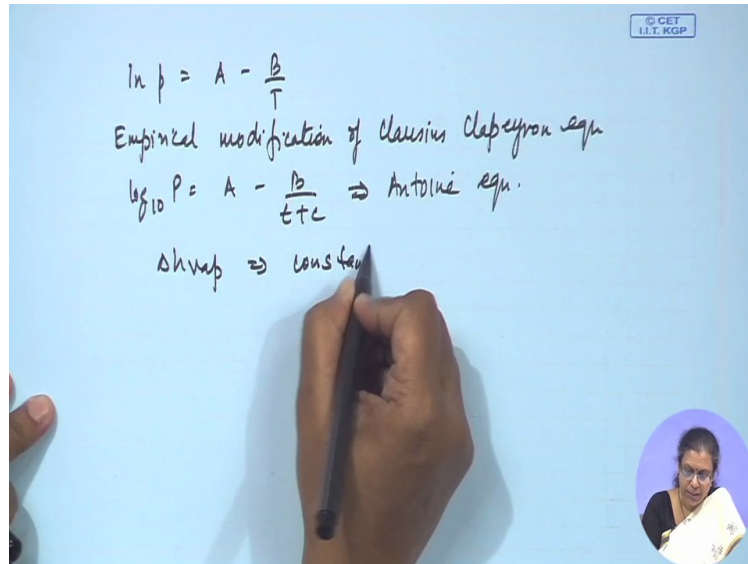 © CET
I.I.T. KGP
ln p = A - B/T
Empirical modification of Clausius Clapeyron eqn
log10 P = A - B/t+c ⇒ Antoine eqn.
Δhvap ⇒ constan